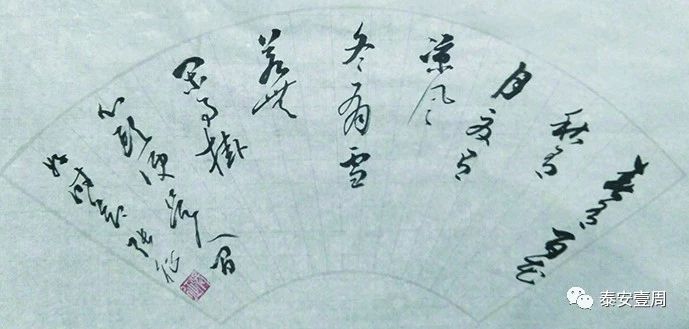 春有百花
秋有
月夏有
凉风
冬有雪
若无
闲事掛
心头便是人间
好时节
泰安壹周